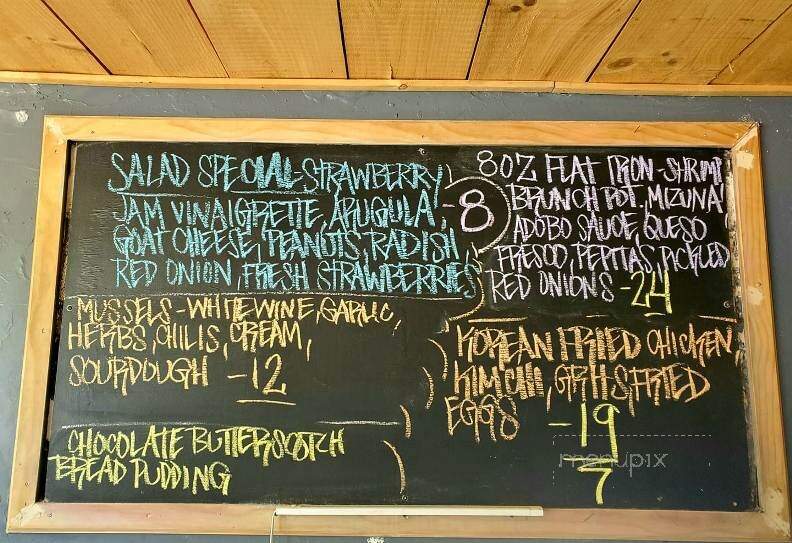 SALAD SPECIAL-STRAWBERRY
JAM VINAIGRETTE, ARUGULA, -8
GOAT CHEESE, PEANUTS, RADISH,
RED ONION, FRESH STRAWBERRIES
8OZ FLAT IRON-SHRIMP
BRUNCH POT, MIZUNA
ADOBO SAUCE, QUESO
FRESCO, PEPITAS, PICKLED
RED ONIONS -24
MUSSELS-WHITE WINE, GARLIC,
HERBS, CHILIS, CREAM,
SOURDOUGH -12
KOREAN FRIED CHICKEN,
KIMCHI, GRITS, FRIED
EGGS -19
CHOCOLATE BUTTERSCOTCH
BREAD PUDDING
7
menupix